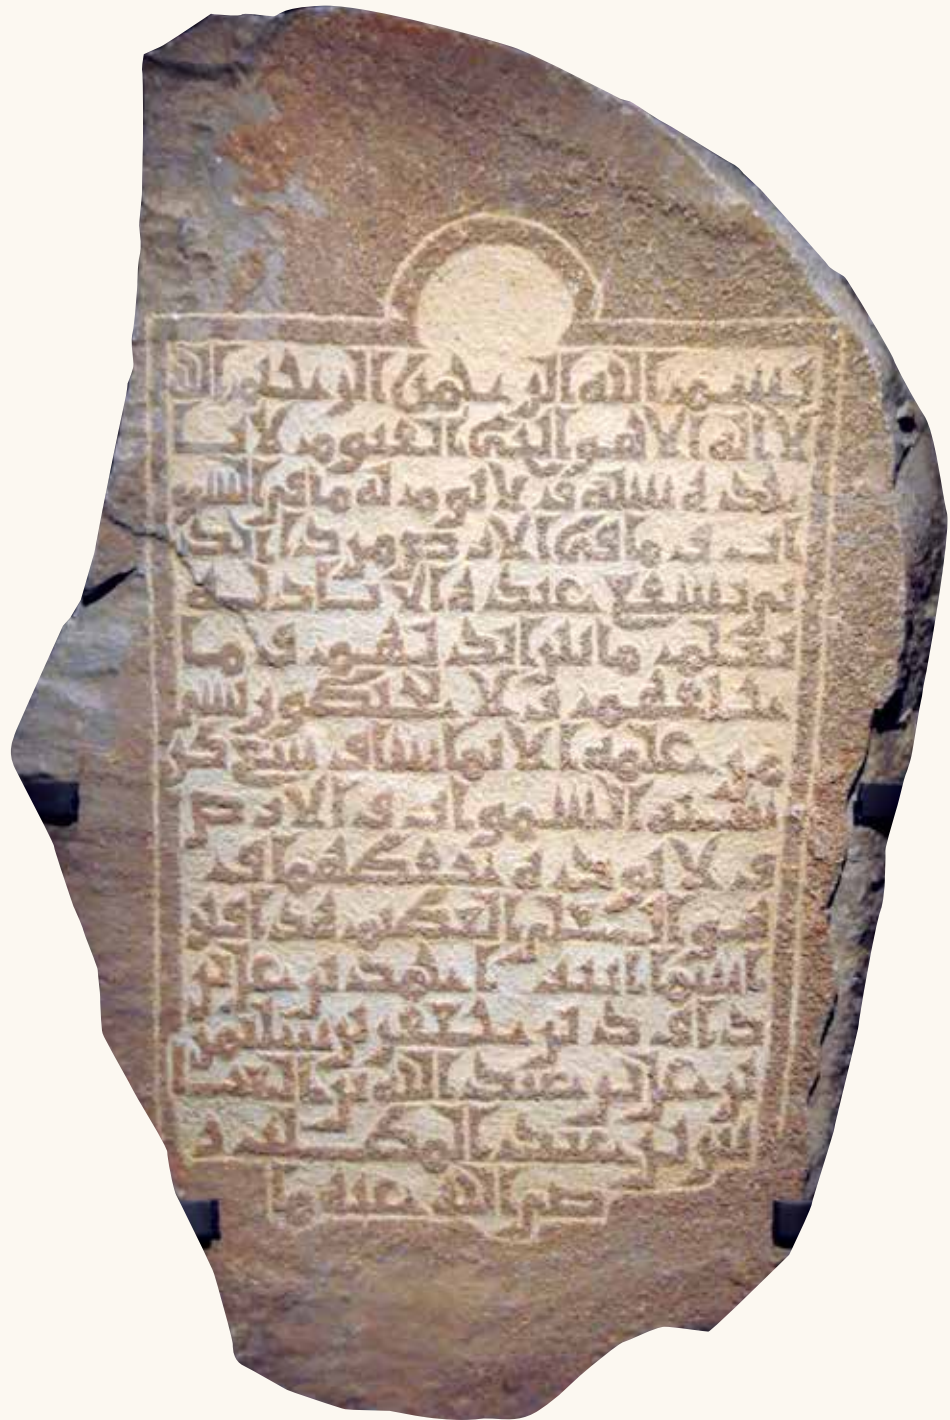 بسم الله الرحمن الرحيم الله
لا اله الا هو الحي القيوم لا تا
خذه سنة ولا نوم له ما في السمو
ات وما في الارض من ذا الذ
ي يشفع عنده الا باذنه
يعلم ما بين ايديهم وما
خلفهم ولا يحيطون بشي
من علمه الا بما شا وسع كر
سيه السموات والارض
ولا يوده حفظهما و
هو العلي العظيم هذا قبر
اسما ابنت بن علي بن
داود بن جعفر بن سليمن
بن علي بن عبد الله بن العبا
س بن عبد المطلب ر
ضي الله عنها